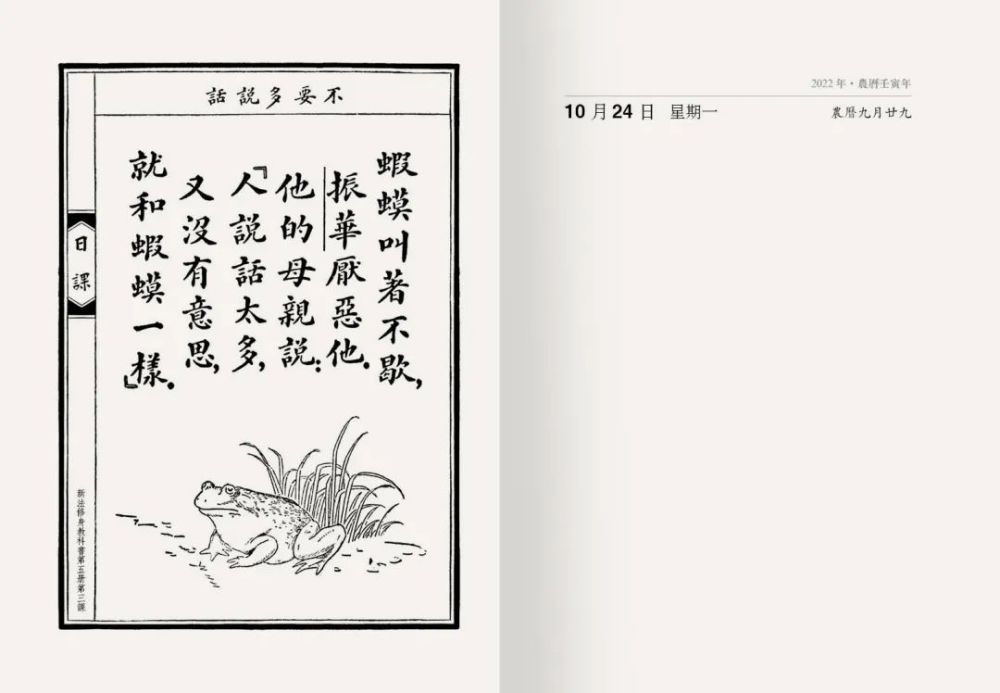 不要多説話
蝦蟆叫著不歇，
振華厭惡他。
他的母親説：
『人説話太多，
又沒有意思，
就和蝦蟆一樣。』
日課
新法修身教科書第五册第三課
2022 年・農曆壬寅年
10 月 24 日 星期一
農曆九月廿九